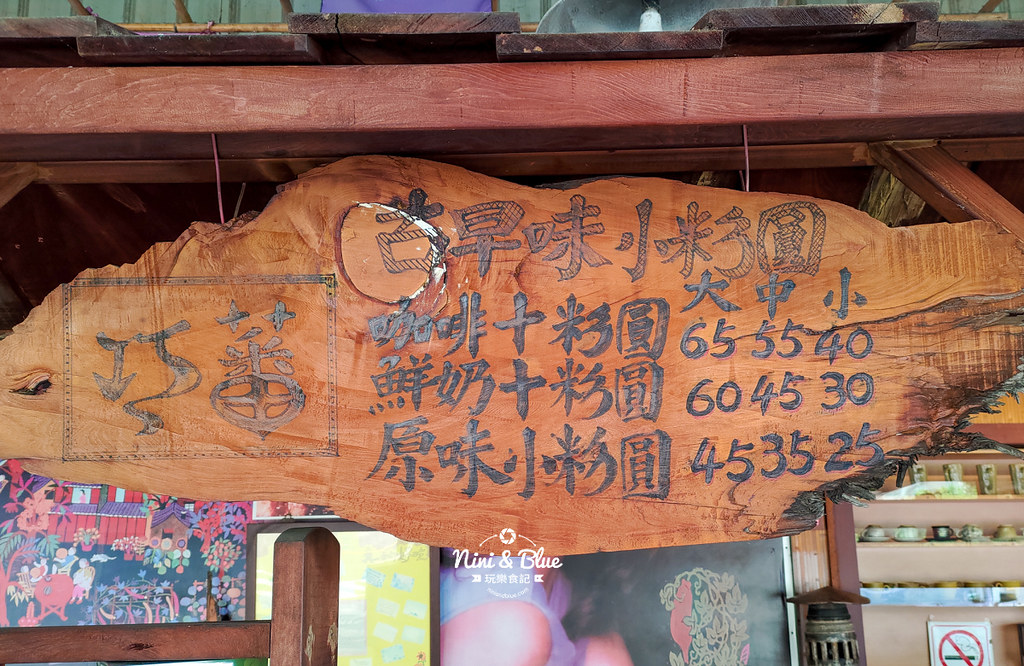 古早味小粉圓
大 中 小
咖啡十粉圓 65 55 40
鮮奶十粉圓 60 45 30
原味小粉圓 45 35 25
巧蕃
Nini & Blue
玩樂食記
niniandblue.com